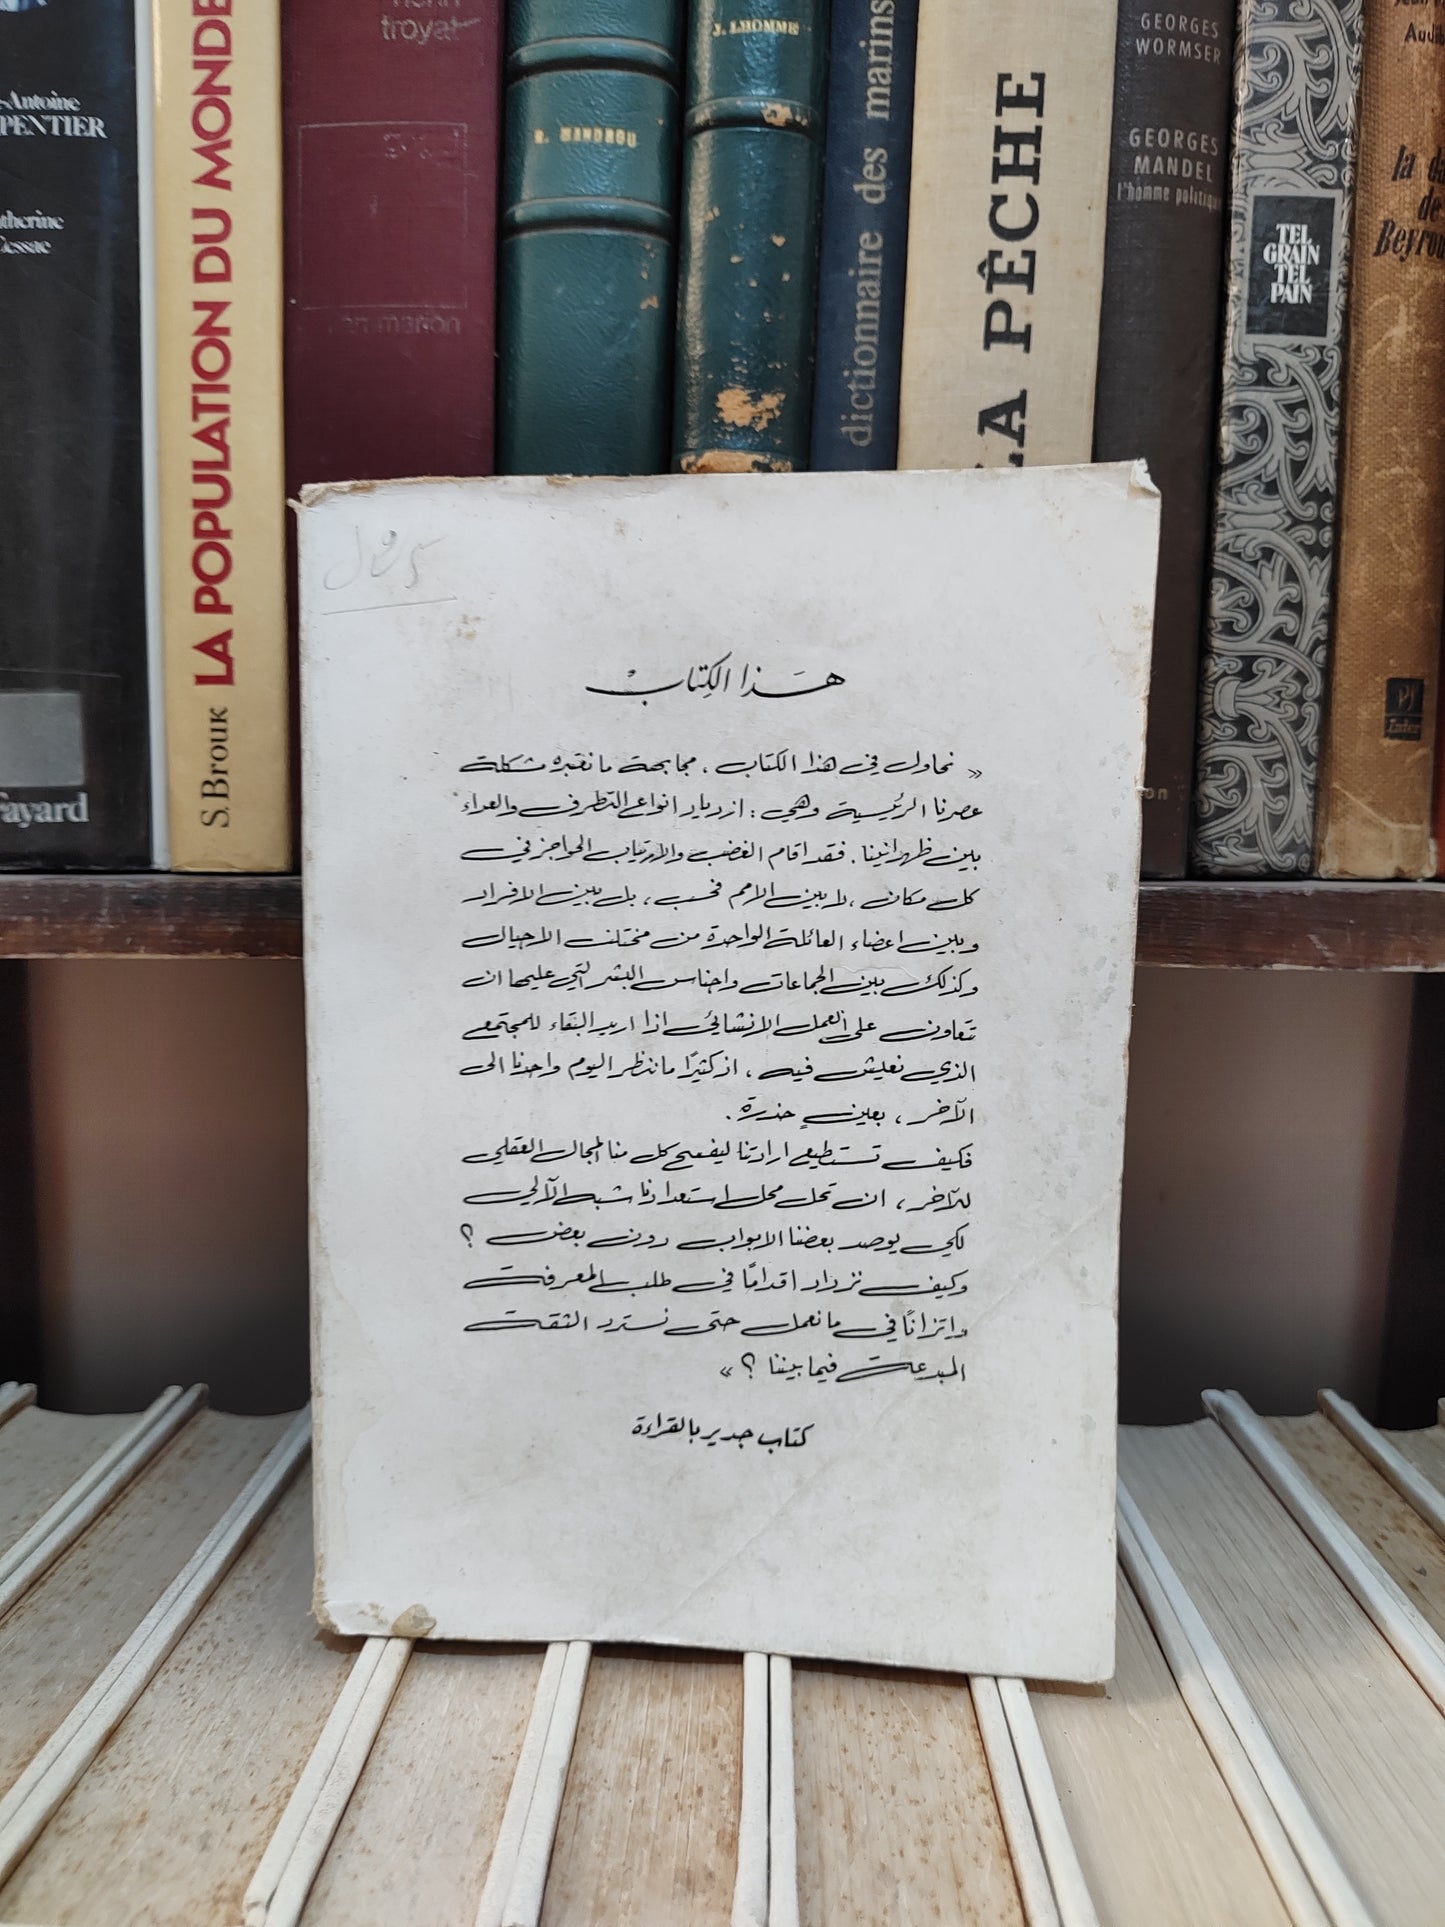 -Antoine
PENTIER
atherine
Cessac
Fayard
S. Brouk LA POPULATION DU MONDE
troyat
flammarion
R. MANDROU
J. LHOMME
dictionnaire des marins
LA PÊCHE
GEORGES
WORMSER
GEORGES
MANDEL
l'homme politique
TEL
GRAIN
TEL
PAIN
la
de
Beyrou
هَذا الكِتابْ
« نحاول في هذا الكتاب ، مجابهة ما نعتبره مشكلة
عصرنا الرئيسية وهي : ازدياد انواع التطرف والعداء
بين ظهرانينا . فقد اقام الغضب والارتياب الحواجز في
كل مكان ، لا بين الامم فحسب ، بل بين الافراد
وبين اعضاء العائلة الواحدة من مختلف الاجيال
وكذلك بين الجماعات واجناس البشر التي عليها ان
تتعاون على العمل الانشائي اذا اريد البقاء للمجتمع
الذي نعيش فيه ، اذ كثيرًا ما ننظر اليوم واحدنا الى
الآخر ، بعينٍ حذرة .
فكيف تستطيع ارادتنا ليفسح كل منا المجال العقلي
للآخر ، ان تحل محل استعدادنا شبه الآلي
لكي يوصد بعضنا الابواب دون بعض ؟
وكيف نزداد اقدامًا في طلب المعرفة
واتزانًا في ما نعمل حتى نسترد الثقة
المبدعة فيما بيننا ؟ »
كتاب جدير بالقراءة